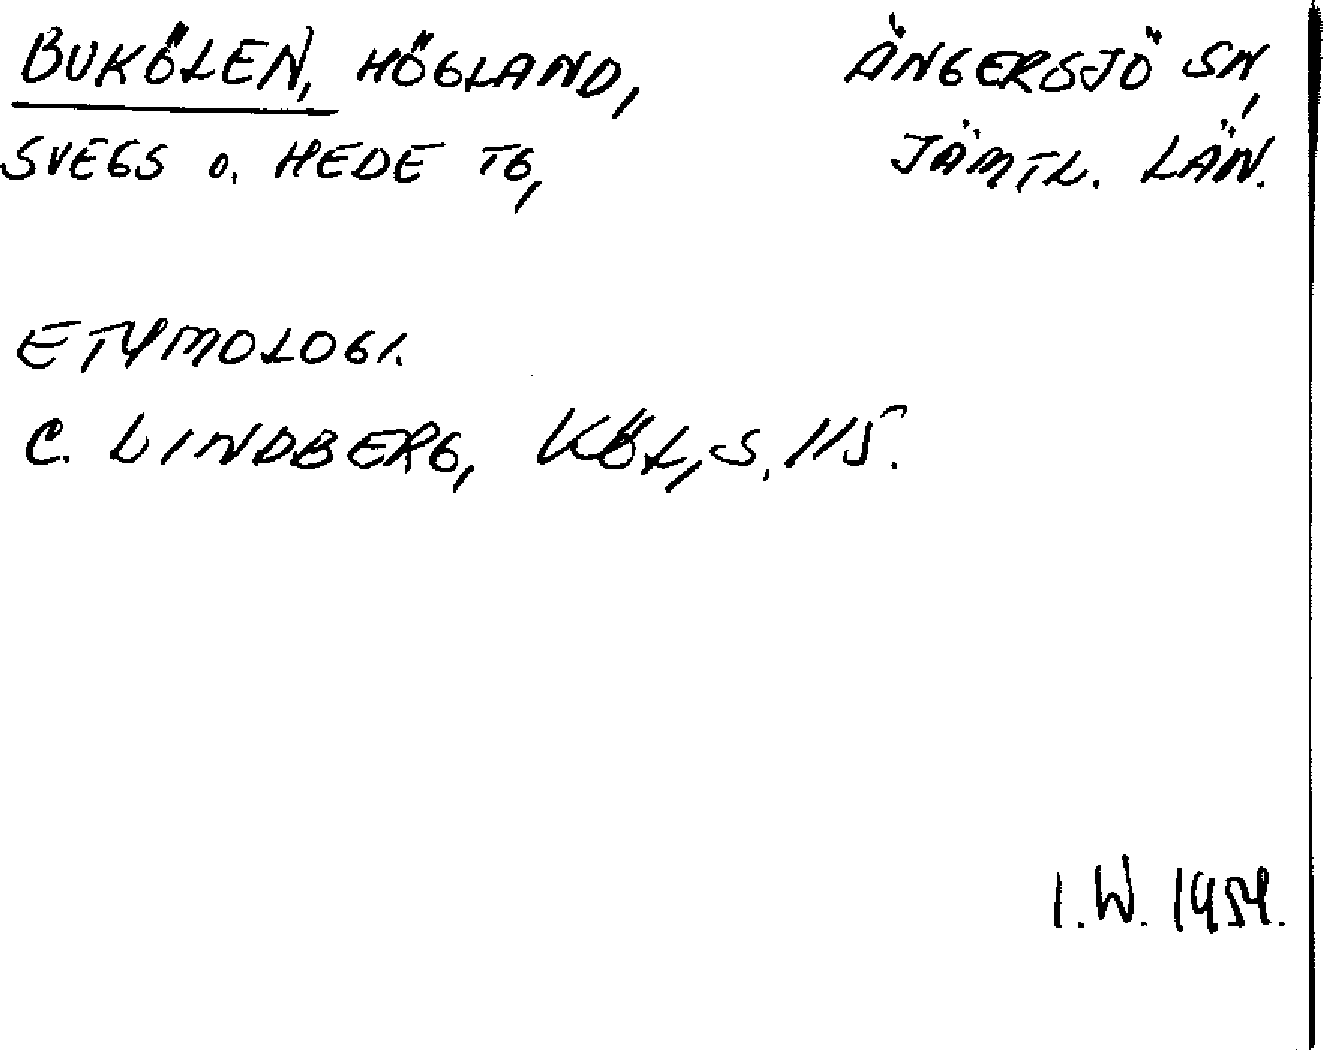 BUKÖLEN, HÖGLAND, ÄNGERSJÖ SN,
SVEGS O. HEDE TG, JÄMTL. LÄN.
ETYMOLOGI.
C. LINDBERG, KÖL, S. 115.
I.W. 1954.